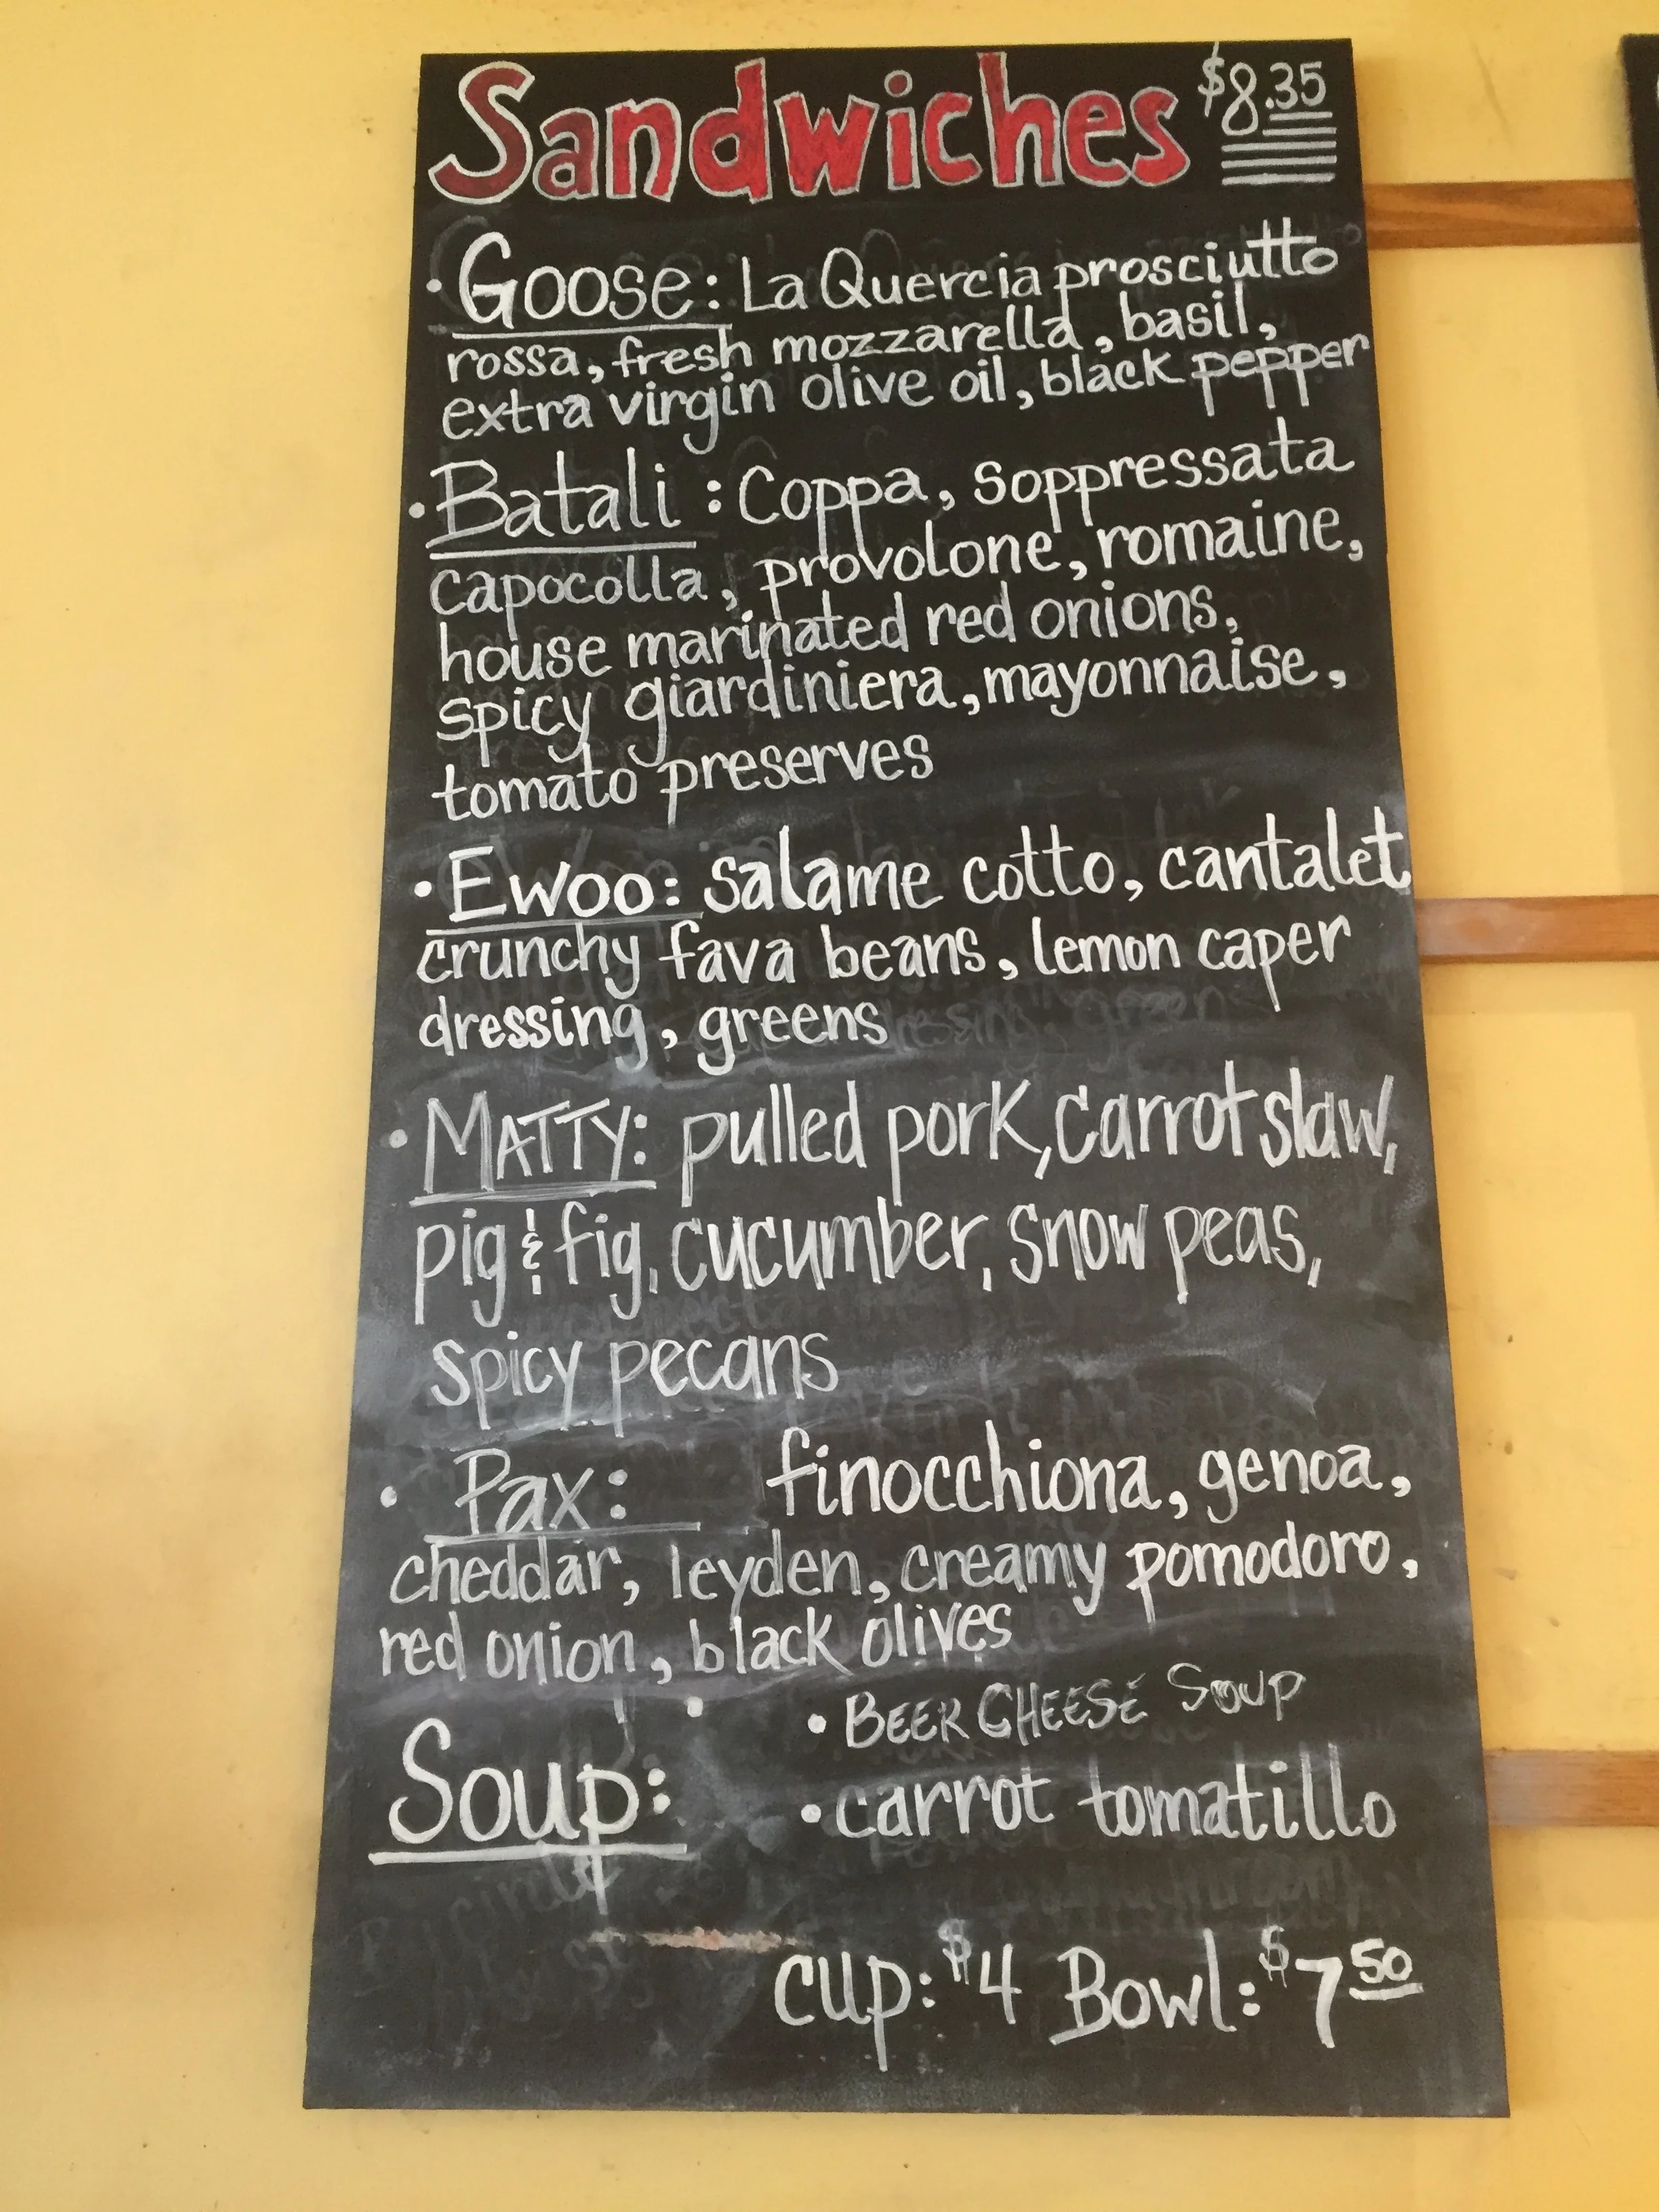 Sandwiches $8.35
• Goose: La Quercia prosciutto
rossa, fresh mozzarella, basil,
extra virgin olive oil, black pepper
• Batali: Coppa, soppressata
capocolla, provolone, romaine,
house marinated red onions,
spicy giardiniera, mayonnaise,
tomato preserves
• Ewoo: salame cotto, cantalet
crunchy fava beans, lemon caper
dressing, greens
• MATTY: pulled pork, carrot slaw,
pig & fig, cucumber, snow peas,
spicy pecans
• Pax: finocchiona, genoa,
cheddar, leyden, creamy pomodoro,
red onion, black olives
• BEER CHEESE SOUP
Soup:
• carrot tomatillo
cup: $4 Bowl: $7 50